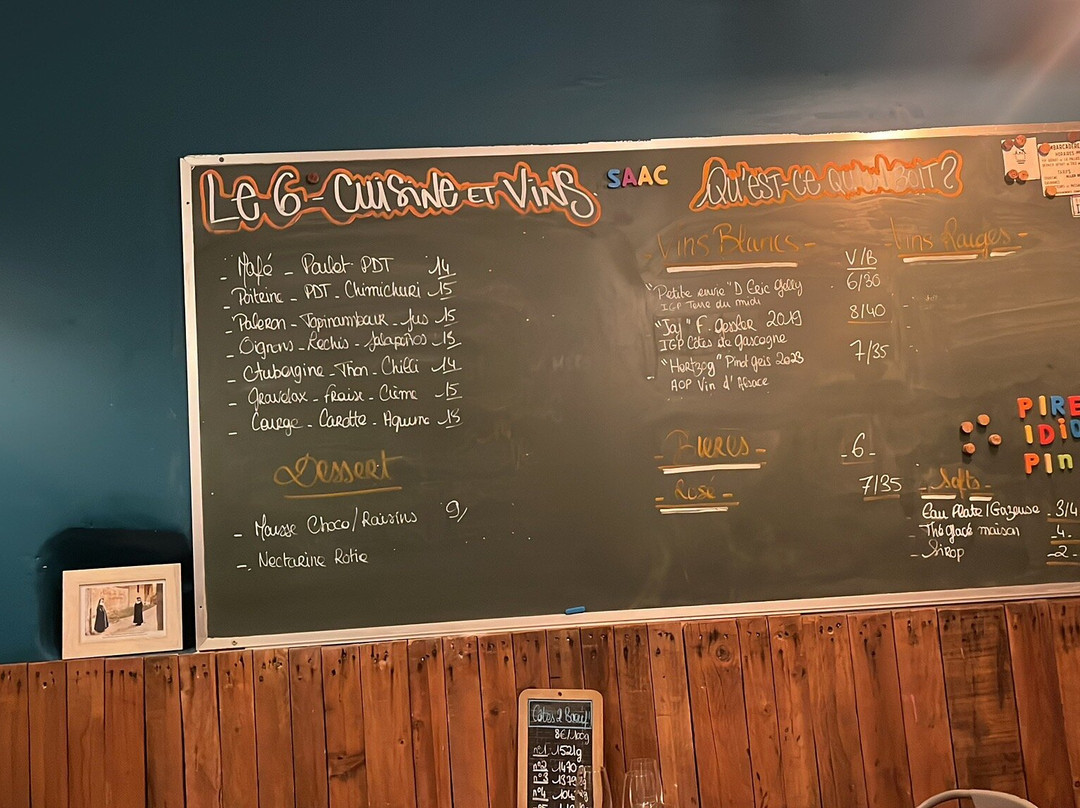 LE 6 - CUISINE ET VINS
SAAC
QU'EST-CE QU'ON BOIT?
- Mafé - Poulet PDT 14
- Poitrine - PDT - Chimichuri 15
- Paleron - Topinambour - Jus 15
- Oignons - Rechis - Jalapeños - 13
- Aubergine - Thon - Chilli 14
- Gravelax - Fraise - Crème - 15
- Courge - Carotte - Agrume 15
Dessert
- Mousse Choco/Raisins 9
- Nectarine Rotie
- Vins Blancs -
V/B
"Petite envie" D Eric Gelly 6/30
IGP Terre du midi
"Jaj" F. Gessler 2019 8/40
IGP Côtes de Gascogne
"Hertzog" Pinot gris 2023 7/35
AOP Vin d'Alsace
- BIERES - - 6 -
- Rosé - 7/35
- Vins Rouges -
EMBARCADERE
HORAIRES
PIRE
IDIO
PIN
- Softs -
- Eau Plate/Gazeuse - 3/4
- Thé glacé maison - 4 -
- Sirop - 2 -
Côtes 2 Boeuf!
8€/100g
n°1 1521g
n°2 1470
n°3 1379
n°4